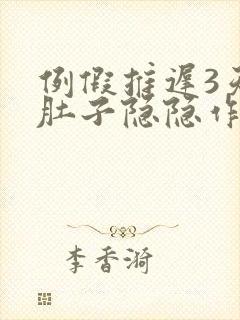 例假推迟3天
肚子隐隐作
李香漪